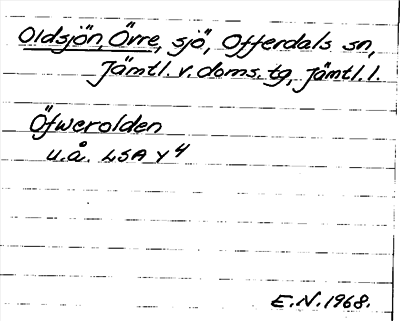 Oldsjön, Övre, sjö, Offerdals sn,
Jämtl. v. doms. tg, Jämtl. l.
Öfwerolden
u.å. LSA Y 4
E.N. 1968.